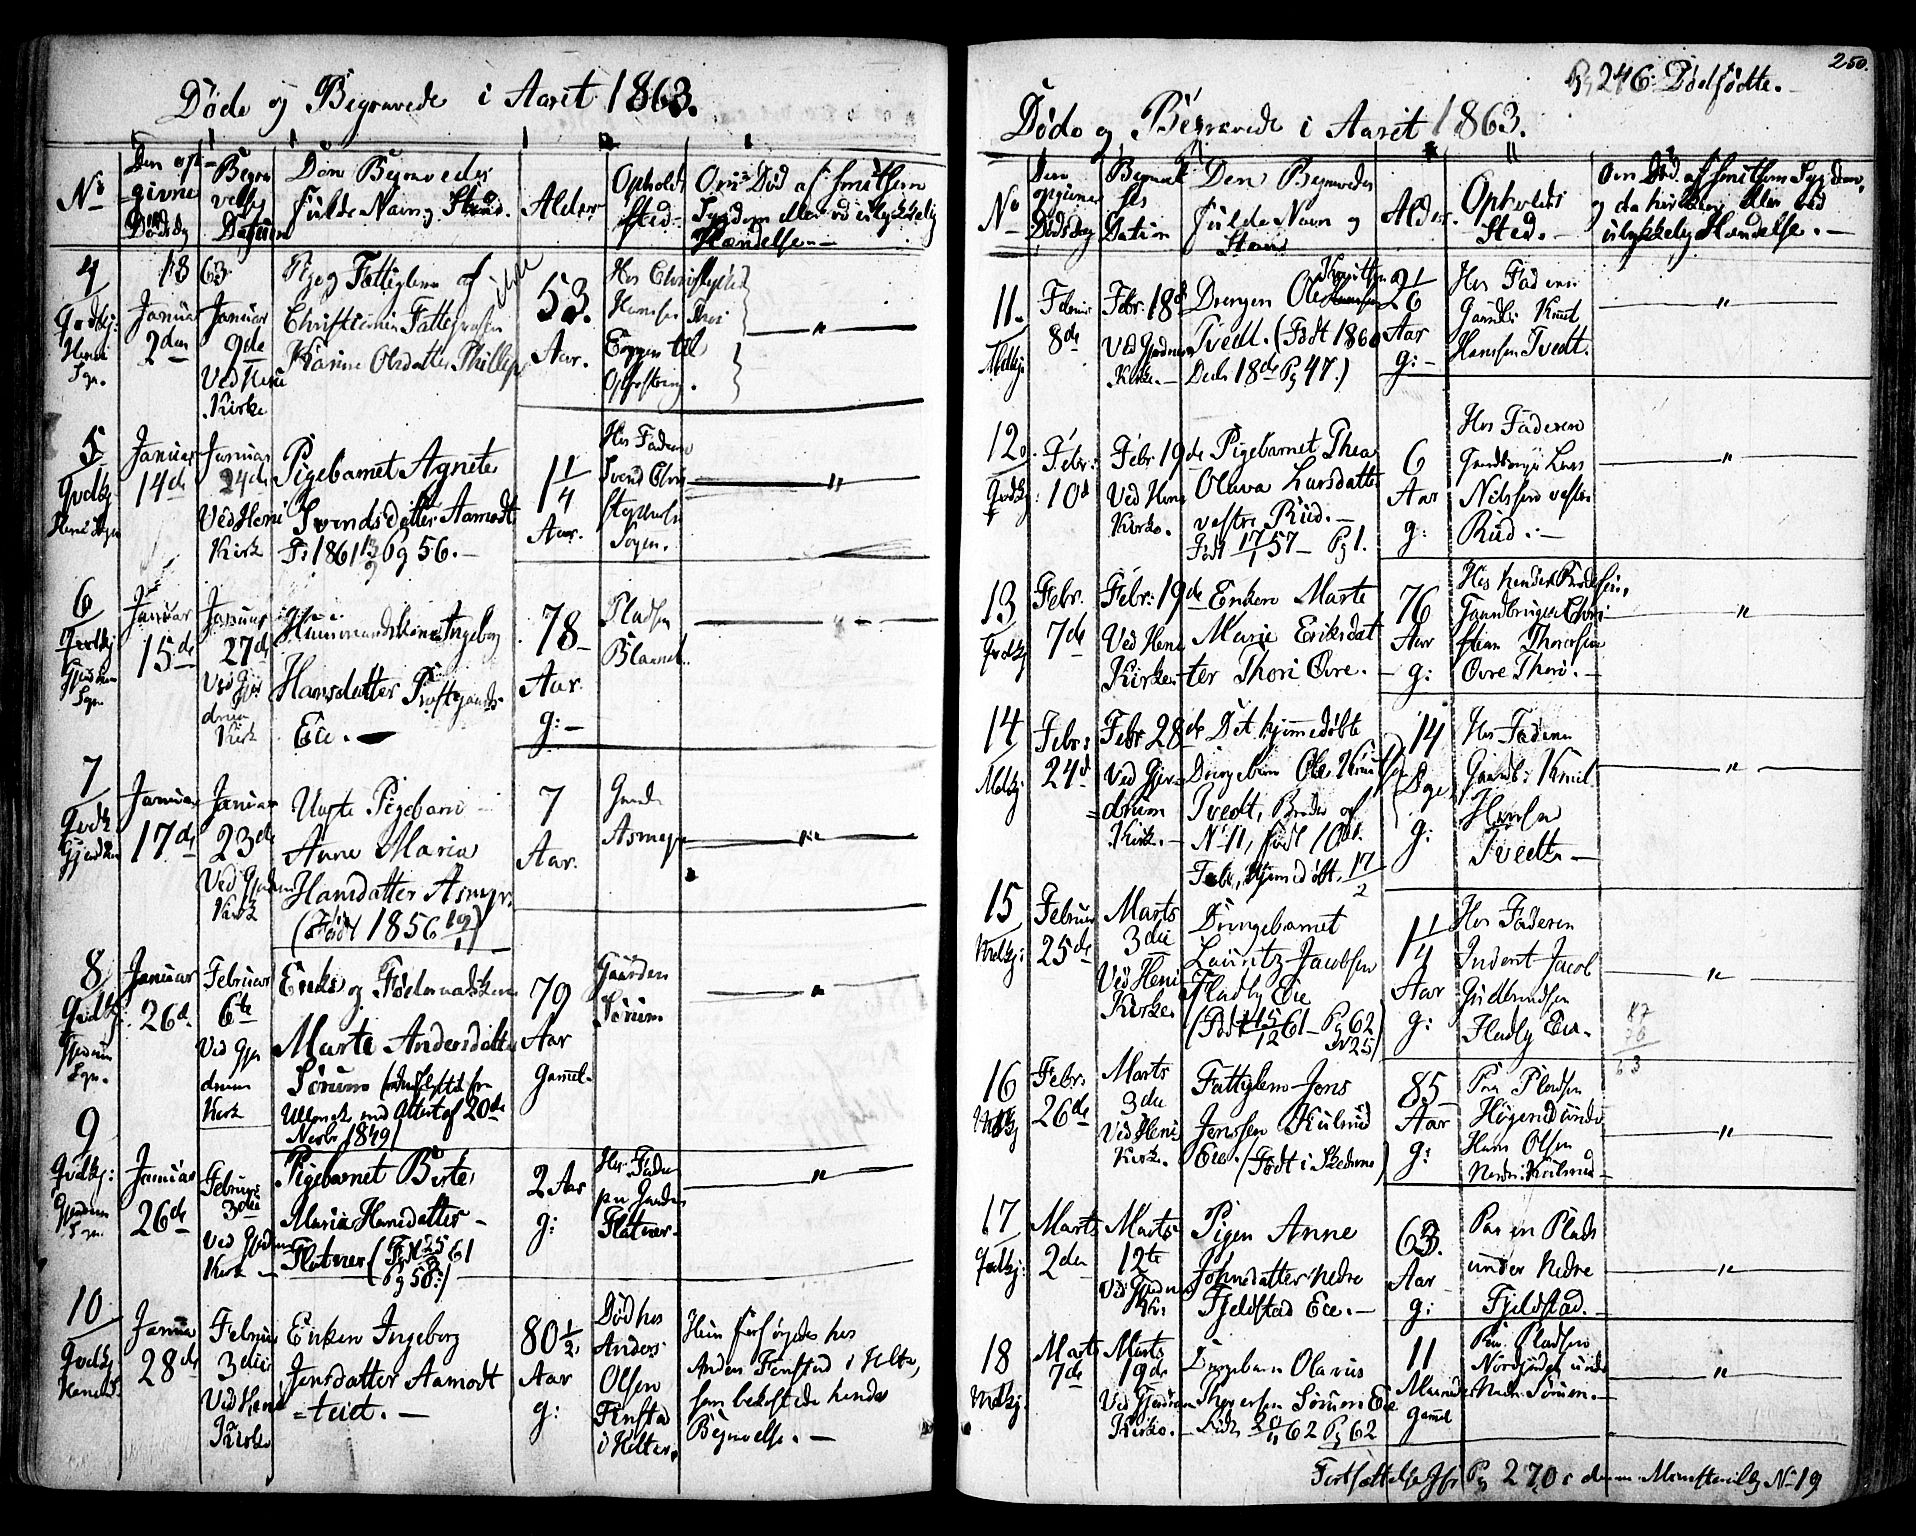 Døde og Begravede i Aaret 1863.
No
Den op-
givne
Dødsdag
Begra
velses
Datum
Den Begravedes
fulde Navn og Stand.
Alder
Opholds
sted
Om Død af smitsom
Sygdom eller ved ulykkelig
Hændelse.—
4
Qvdkj:
Heni
Sgn.
1863
Januar
2den
Januar
9de
Ved Heni
Kirke
Pige og Fattiglem af
Christian
Karine Olsdatter
53.
Aar.
Hos
Hansen
til
"
5
Qvdkj
Heni Sogn
Januar
14de
Januar
24de
Ved Heni
Kirk
Pigebarnet Agnete
Svendsdatter Aamodt
F: 1861 13/9 Pg 56.—
1 1/4
Aar.
Hos Faderen
Svend
"
6
Qvdkj
Gjerdrum
Sgn
Januar
15de
Januar
27de
Ved Gjer
drum
Kirk
Ingeborg
Hansdatter
Eie.—
78
Aar.
g:—
Pladsen
"
7
Qvdk
Januar
17de
Januar
23de
Ved Gjerdrum
Kirk
Ugifte Pigebarn
Anne Maria
Hansdatter Asmyr.
(Født 1856
7
Aar.
Asmyr
"
8
Qvdkj:
Gjerdrum
Sgn.
Januar
26de
Februar
6te
Ved Gjer
drum
Kirk
Enke og
Marte Andersdatter
Sørum
Ullensak. med Attest af 20de
Novbr 1849)
79
Aar
Gammel.
Gaarden
Sørum
"
9
Qvdkj:
Gjerdrum
Sgn.
Januar
26de
Februar
3die
Ved Gjerdrum
Kirk
Pigebarnet Berte
Maria Hansdatter
Flatner (Født 25 61
Pg 58:)
2 Aar
g:
Hos Faderen
paa Gaarden
Flatner.
"
10
Qvdkj
Januar
28de
Februar
3die
Ved Heni
Kirke
Enken Ingeborg
Jensdatter Aamodt
=teiet.—
80 1/2
Aar
g:
Død hos
Anders
Olsen
Finstad
i Holter.
Hun forsørgedes hos
Anders Finstad i Holter,
som bekostede hendes
Begravelse.—
250.
Pg 246. Dødfødte.—
Døde og Begravede i Aaret 1863.
No
Den
opgivne
Dødsdag
Begravel
ses
Datum
Den Begravedes
fulde Navn og
Stand
Alder.
Opholds
Sted.—
Om Død af smitsom Sygdom,
og da hvilken, eller ved
ulykkelig Hændelse.—
11.
Mdkj:
Februar
8de
Febr. 18de
Ved Gjerdrum
Kirke.—
Drengen Ole Knudsen
Tvedt. (Født 1860
Decbr 18de Pg 47.)
2
Aar
g:—
Hos Faderen
Gaardbr: Knud
Hansen Tvedt.
"
12.
Qvdkj:
Febr:
10de
Febr 19de
Ved Heni
Kirke.
Pigebarnet Thea
Olava Larsdatter
vestre Rud.—
Født 17/1 57— Pg 1.
6
Aar
g:
Hos Faderen
Gaardbruger Lars
Nilssen vestre
Rud.—
"
13
Qvdkj
Febr.
7de
Febr: 19de
Ved Heni
Kirke.
Enken Marte
Marie Eriksdat
ter Thori Øvre.—
76
Aar
g:
Hos hendes
Gaardbruger Chri
stian Thoresen
Øvre Thori.—
"
14
Mdkj:
Febr:
24de
Febr 28de
Ved Gjer=
drum
Kirk.—
Det hjemmedøbte
Drengebarn Ole Knudsen
Tvedt, Broder af
No 11, født 10de
Febr, hjemmedøbt 17/2
14
Dage
g:
Hos Faderen
Gaardb: Knud
Hansen
Tvedt.—
"
15
Mdkj:
Februar
25de
Marts
3die
Ved Heni
Kirke.
Drengebarnet
Lauritz Jacobsen
Fladby Eie
(Født 15/12 61— Pg 62
Nr 25)
1 1/4
Aar
g:
Hos Faderen
Inderst Jacob
Gudbrandsen
Fladby Eie.
"
16
Mdkj
Febr:
26de
Marts
3die
Ved Heni
Kirke.
Fattiglem Jens
Jenssen Kulsrud
Eie. (Født i Skedsmo)
85
Aar
g:
Paa Pladsen
under
Hans Olsen
Nedre Kulsrud—
"
17
Qvdkj:
Marts
2den
Marts
12te
Ved Gjerdrum
Kk:
Pigen Anne
Johnsdatter nedre
Fjeldstad Eie.—
63.
Aar
g:
Paa en Plads
under Nedre
Fjeldstad.—
"
18
Mdkj:
Marts
7de
Marts
19de
Ved Gjerdrum
Kirke.—
Drengebarn Olavus
Sørum Eie
Født 62 Pg 62
11
Maaneder
Gammel
Paa Pladsen
under
Nedre Sørum.—
"
Fortsættelse Pg 270 i denne Ministerialbog No 19